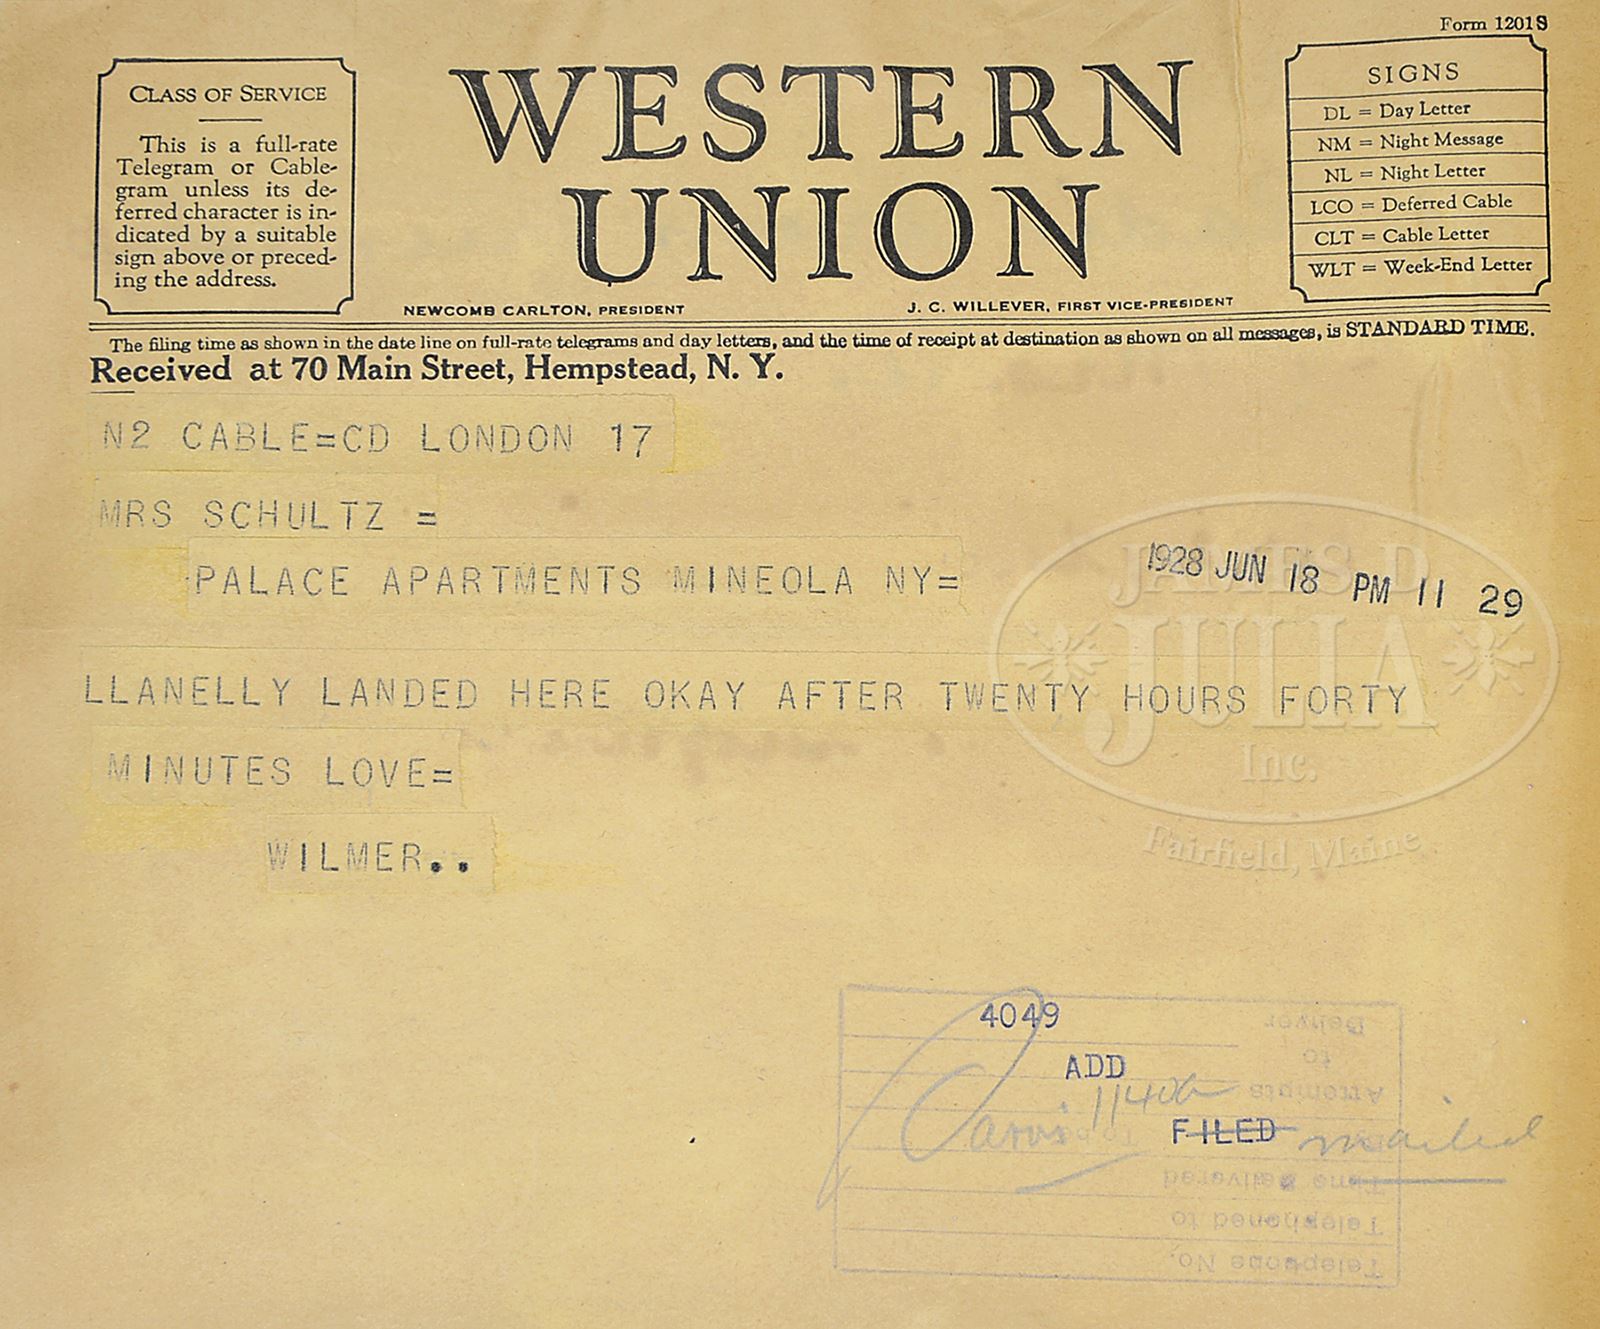 Form 1201S
CLASS OF SERVICE
This is a full-rate
Telegram or Cable-
gram unless its de-
ferred character is in-
dicated by a suitable
sign above or preced-
ing the address.
WESTERN
UNION
NEWCOMB CARLTON, PRESIDENT
J. C. WILLEVER, FIRST VICE-PRESIDENT
SIGNS
DL = Day Letter
NM = Night Message
NL = Night Letter
LCO = Deferred Cable
CLT = Cable Letter
WLT = Week-End Letter
The filing time as shown in the date line on full-rate telegrams and day letters, and the time of receipt at destination as shown on all messages, is STANDARD TIME.
Received at 70 Main Street, Hempstead, N. Y.
N2 CABLE=CD LONDON 17
MRS SCHULTZ =
PALACE APARTMENTS MINEOLA NY=
1928 JUN 18 PM 11 29
LLANELLY LANDED HERE OKAY AFTER TWENTY HOURS FORTY
MINUTES LOVE=
WILMER..
JAMES D.
JULIA
Inc.
Fairfield, Maine
4049
ADD
FILED mailed
Telephone No.
Telephoned to
Time Delivered
To be
Attempts
to
Deliver